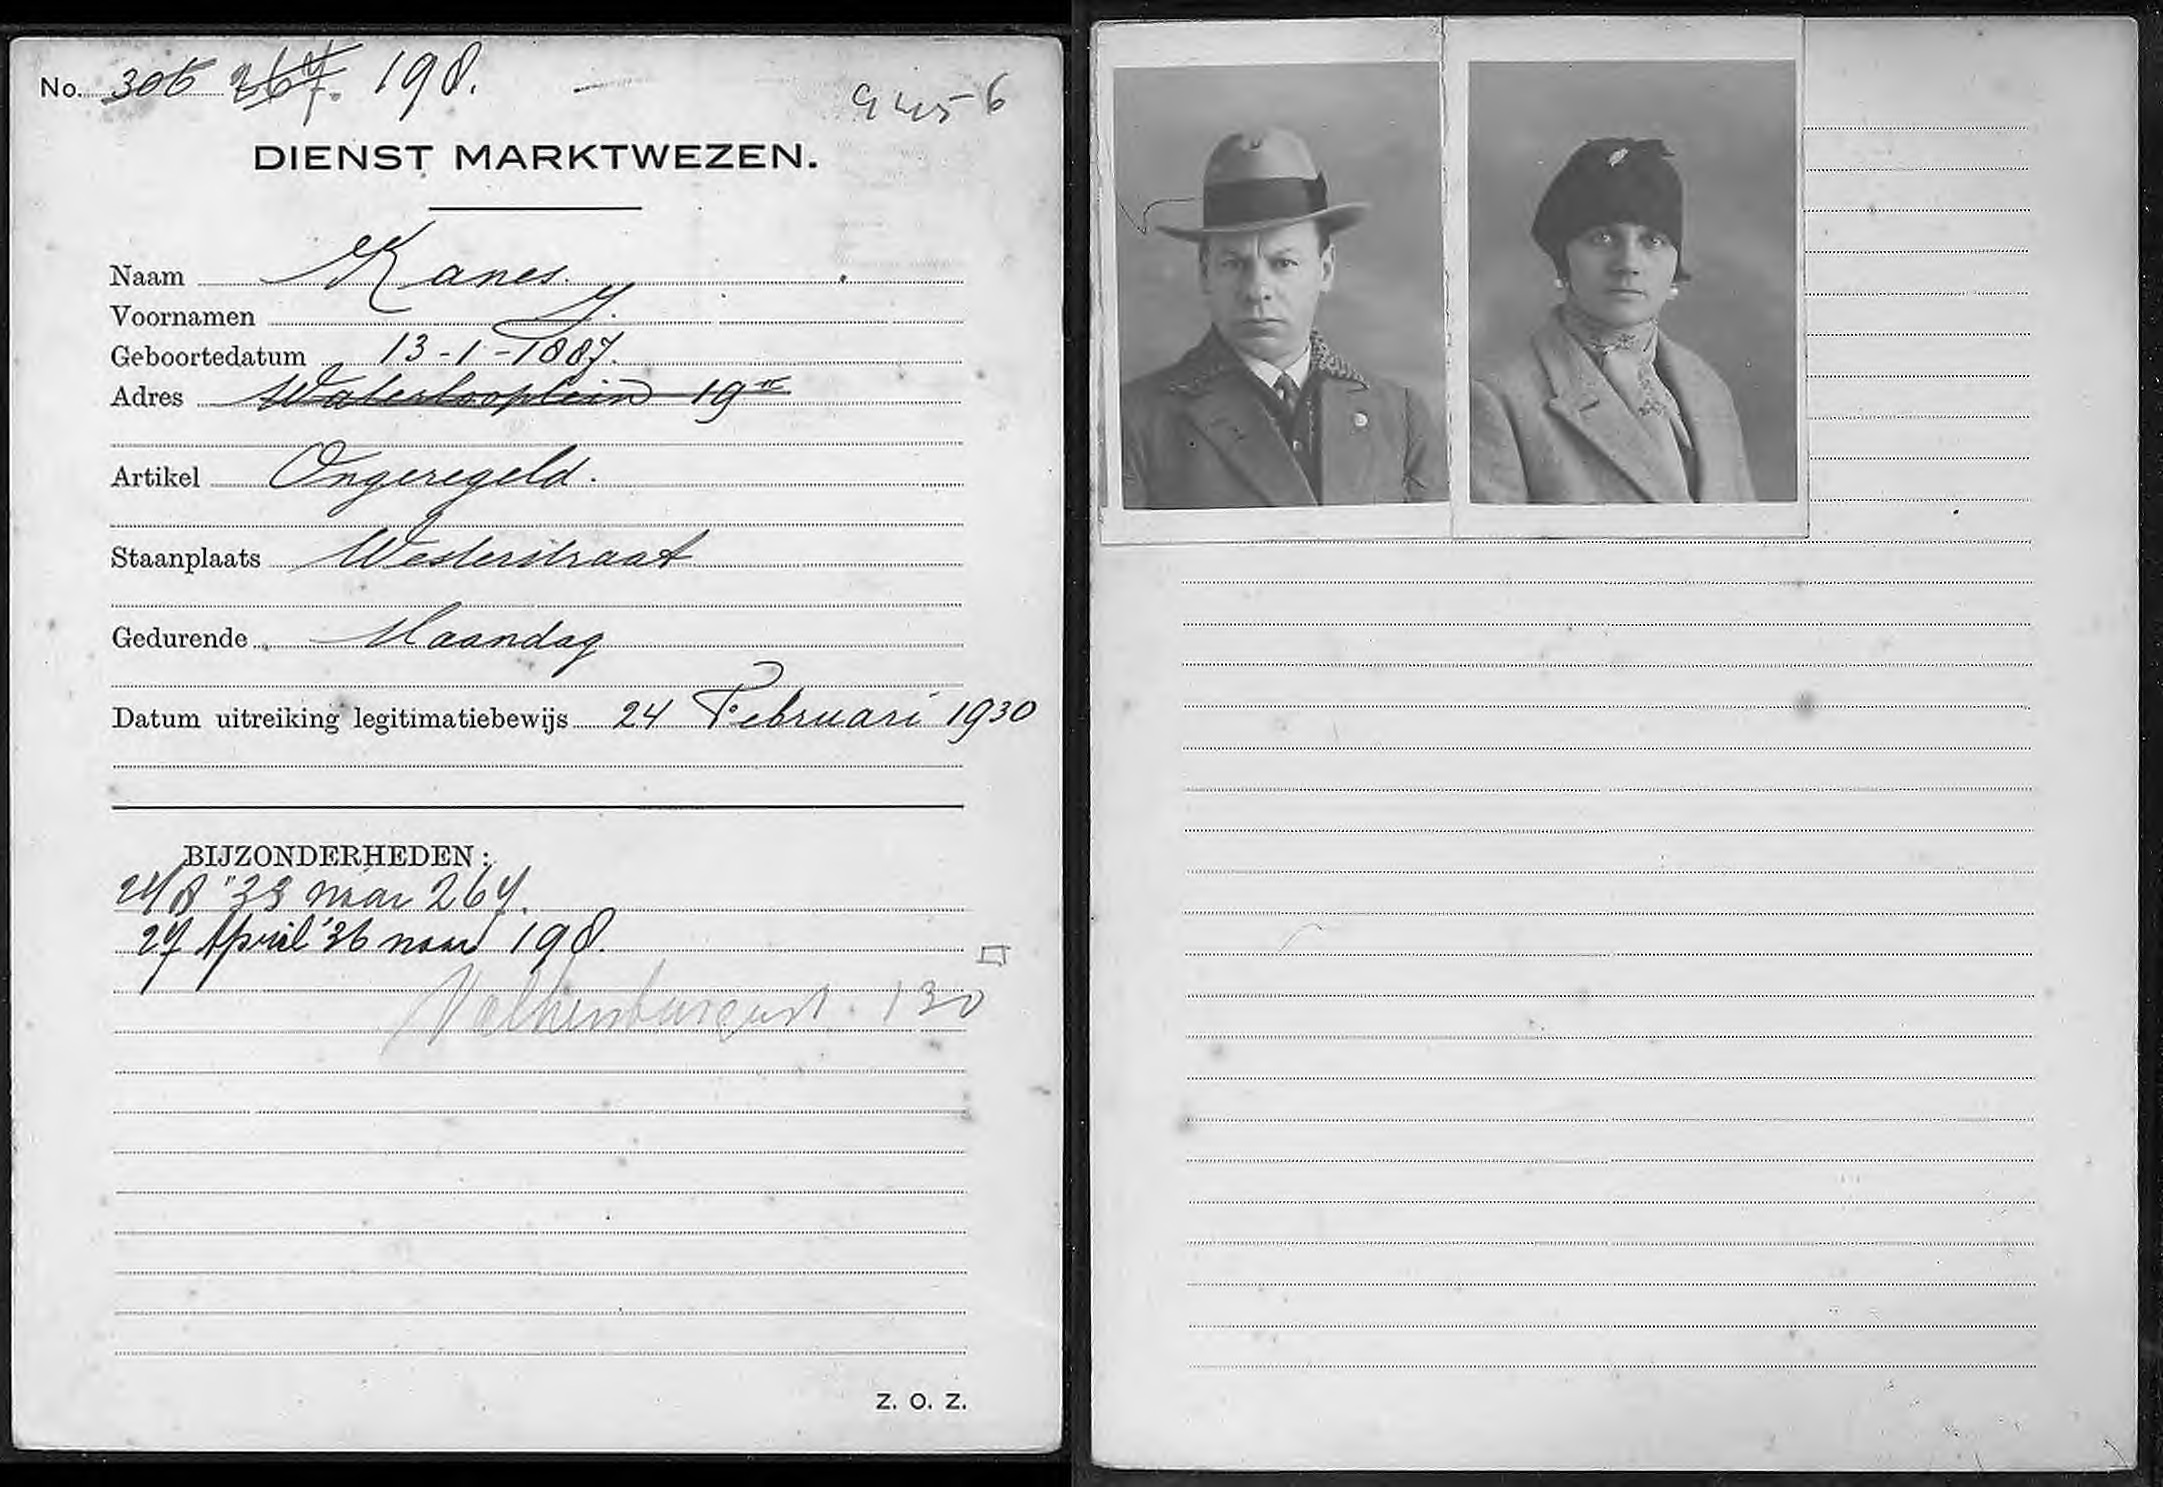 No. 306 267. 198.
9456
DIENST MARKTWEZEN.
Naam Kanes.
Voornamen J.
Geboortedatum 13-1-1887.
Adres Waterlooplein 19 II
Artikel Ongeregeld.
Staanplaats Westerstraat
Gedurende Maandag
Datum uitreiking legitimatiebewijs 24 Februari 1930
BIJZONDERHEDEN:
24/8 '33 naar 267.
27 April '36 naar 198.
Valkenburgerst. 130
Z. O. Z.